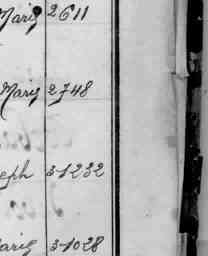 Marig 2611
Marig 2748
eph 3-1232
arig 3-1028